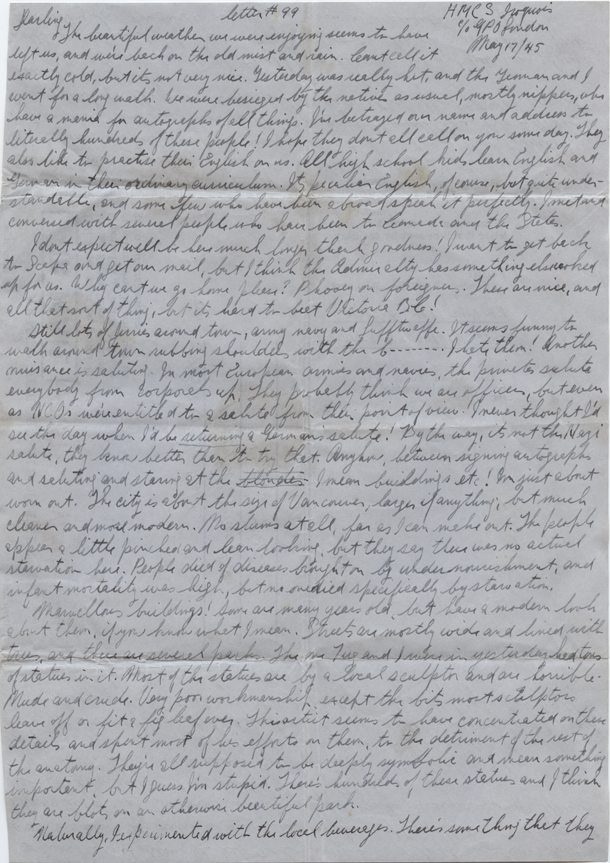 letter # 99
HMCS Iroquois
c/o GPO London
May 17/45
Darling
The beautiful weather we were enjoying seems to have
left us, and we're back on the old mist and rain. Cannot call it
exactly cold, but its not very nice. Yesterday was really hot, and the Yeoman and I
went for a long walk. We were besieged by the natives as usual, mostly nippers, who
have a mania for autographs of all things. I've betrayed our name and address to
literally hundreds of these people! I hope they don't all call on you some day. They
also like to practise their English on us. All high school kids learn English and
German in their ordinary curriculum. Its peculiar English, of course, but quite under-
standable, and some few who have been abroad speak it perfectly. I met and
conversed with several people who have been to Canada and the States.
I dont expect we'll be here much longer thank goodness! I want to get back
to Scapa and get our mail, but I think the Admiralty has something else worked
up for us. Why cant we go home please? Phooey on foreigners. These are nice, and
all that sort of thing, but its hard to beat Victoria B.C.!
Still lots of Jerries around town, army navy and luftwaffe. It seems funny to
walk around town rubbing shoulders with the b-------. I hate them! Another
nuisance is saluting. In most European armies and navies, the privates salute
everybody from corporals up. They probably think we are officers, but even
as NCOs we're entitled to a salute from their point of view. I never thought I'd
see the day when I'd be returning a German's salute! By the way, its not the Nazi
salute, they know better than to try that. Anyhow, between signing autographs
and saluting and staring at the blondes I mean buildings etc.! I'm just about
worn out. The city is about the size of Vancouver, larger if anything, but much
cleaner and more modern. No slums at all, far as I can make out. The people
appear a little pinched and lean looking, but they say there was no actual
starvation here. People died of diseases brought on by undernourishment, and
infant mortality was high, but no one died specifically by starvation.
Marvellous buildings! Some are many years old, but have a modern look
about them, if you know what I mean. Streets are mostly wide and lined with
trees, and there are several parks. The one Tug and I were in yesterday had tons
of statues in it. Most of the statues are by a local sculptor and are horrible.
Nude and crude. Very poor workmanship, except the bits most sculptors
leave off or fit a fig leaf over. This artist seems to have concentrated on these
details and spent most of his efforts on them, to the detriment of the rest of
the anatomy. They're all supposed to be deeply symbolic and mean something
important, but I guess I'm stupid. There's hundreds of these statues and I think
they are blots on an otherwise beautiful park.
Naturally, I experimented with the local beverages. There's something that they